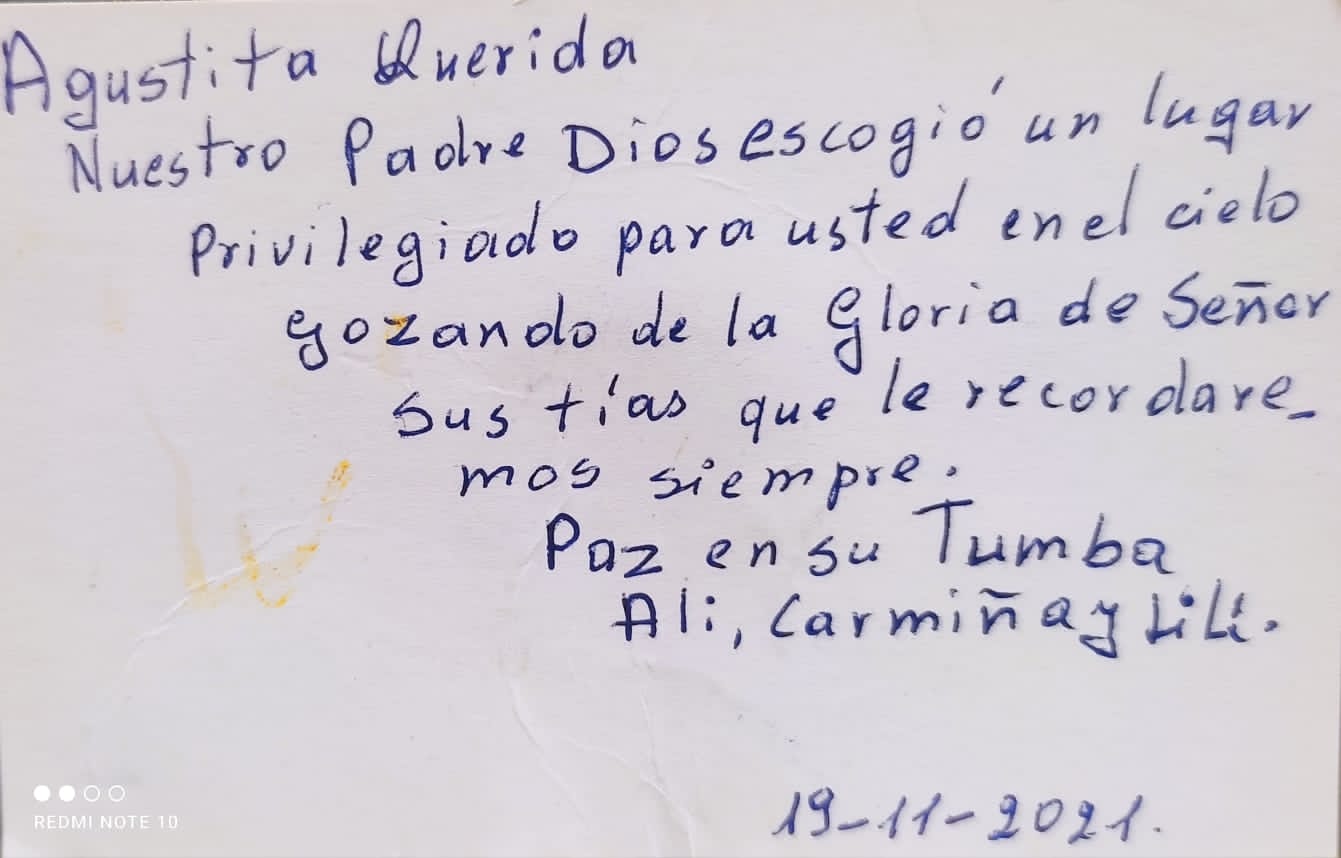 Agustita Querida
Nuestro Padre Dios escogió un lugar
Privilegiado para usted en el cielo
gozando de la Gloria de Señor
Sus tías que le recordare_
mos siempre.
Paz en su Tumba
Ali, Carmiña y Lili.
19-11-2021.
REDMI NOTE 10